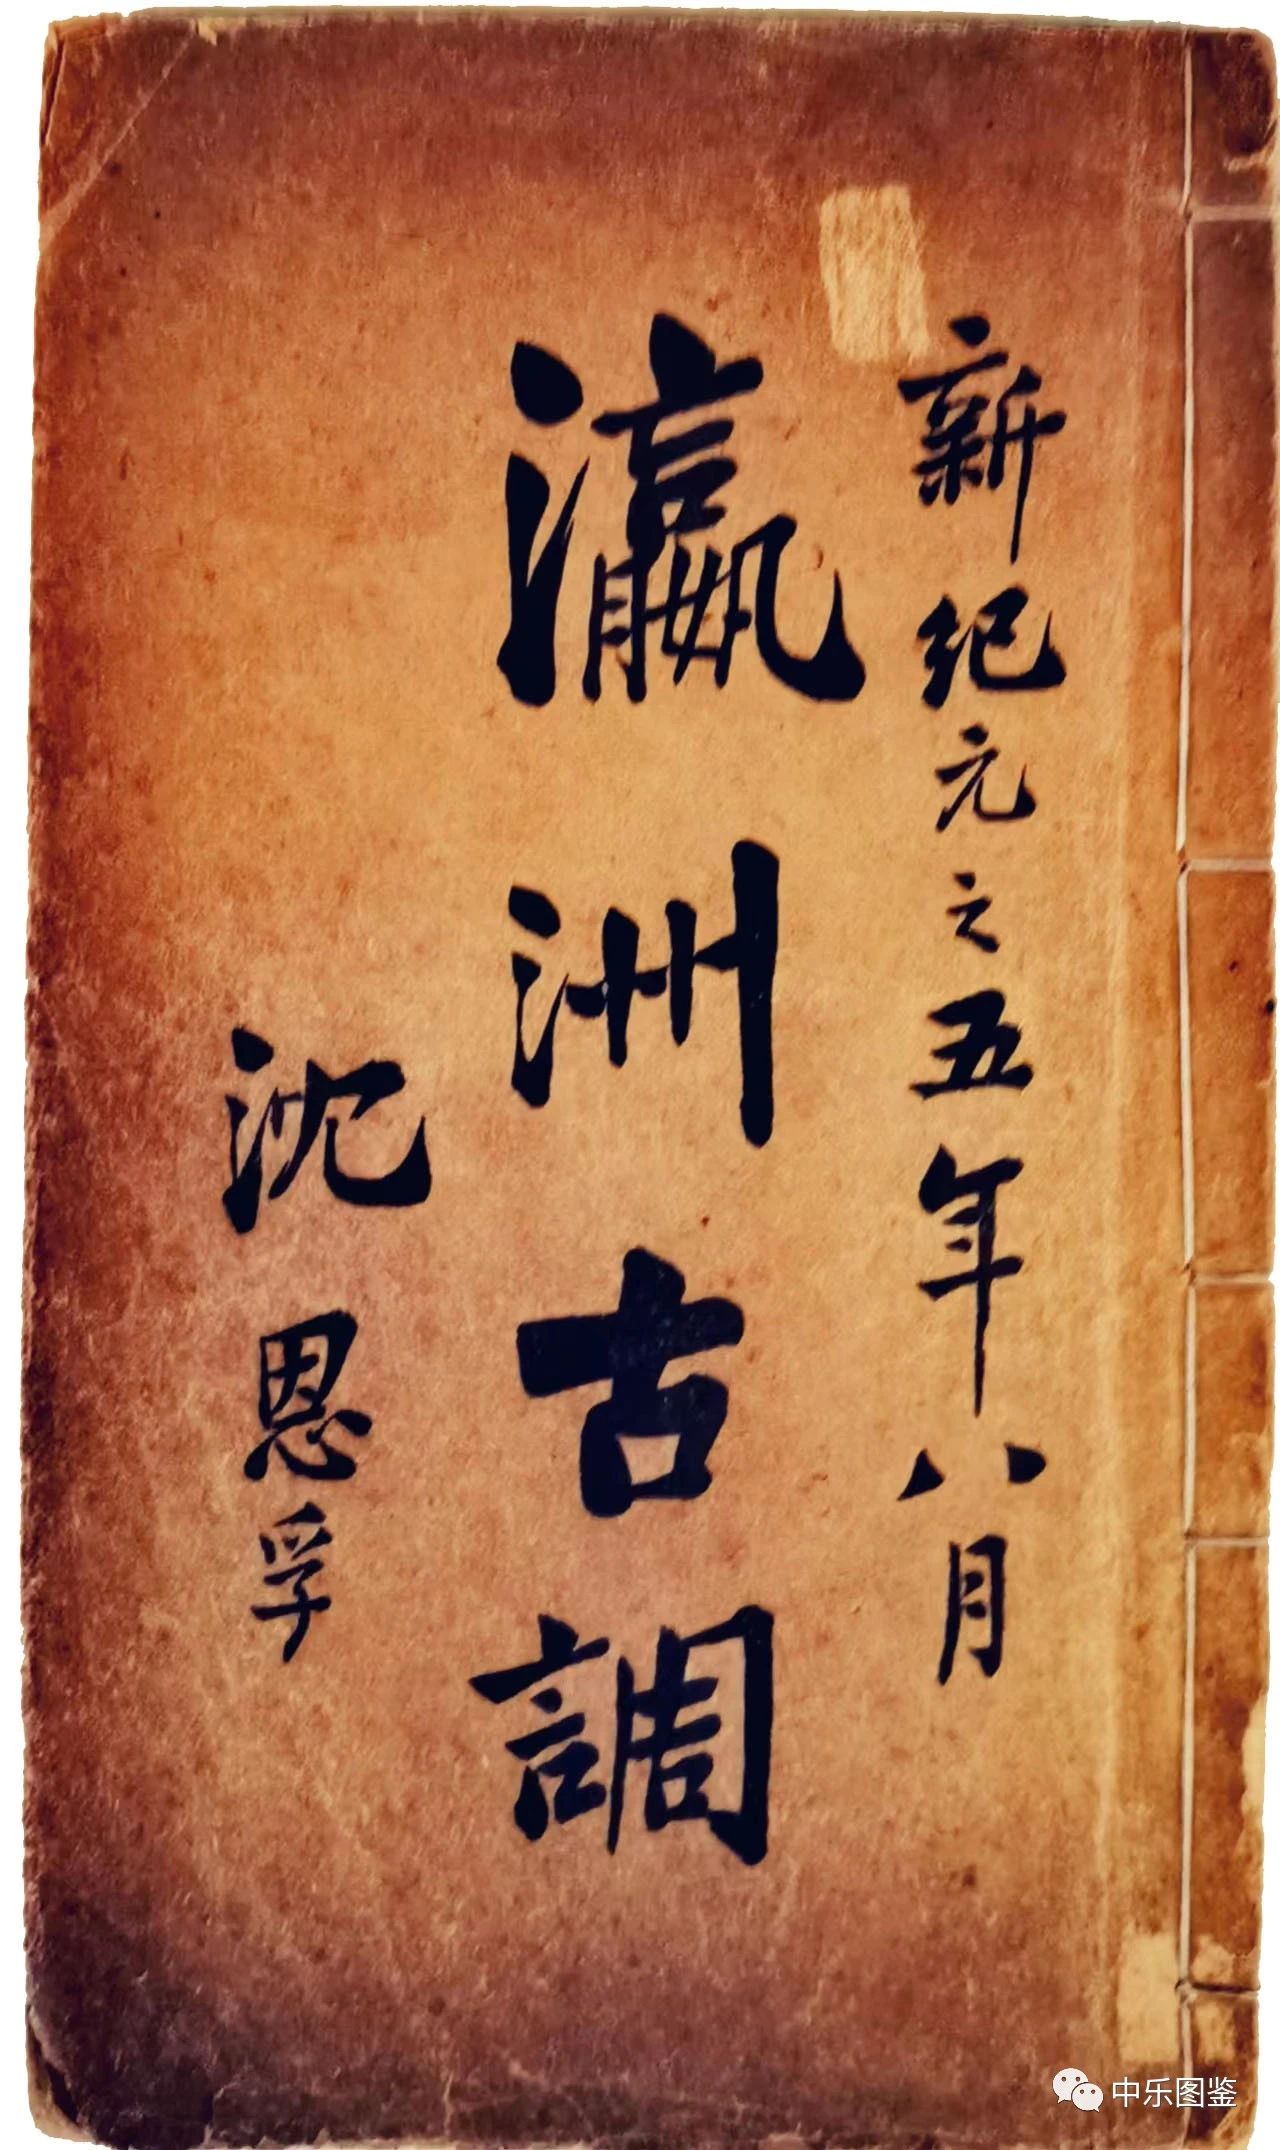 新紀元之五年八月
瀛洲古調
沈恩孚
中乐图鉴